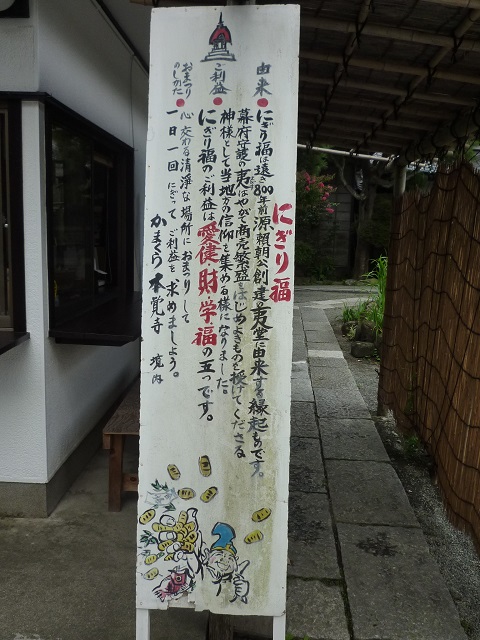 にぎり福
由来
にぎり福は遠き800年前源頼朝公創建の夷堂に由来する縁起ものです。
幕府守護の夷はやがて商売繁盛をはじめよきものを授けてくださる
神様として当地方の信仰を集める様になりました。
ご利益
にぎり福のご利益は愛・健・財・学・福の五つです。
おまつりのしかた
心交わる清浄な場所におまつりして
一日一回 にぎって ご利益を求めましょう。
かまくら 本覚寺 境内